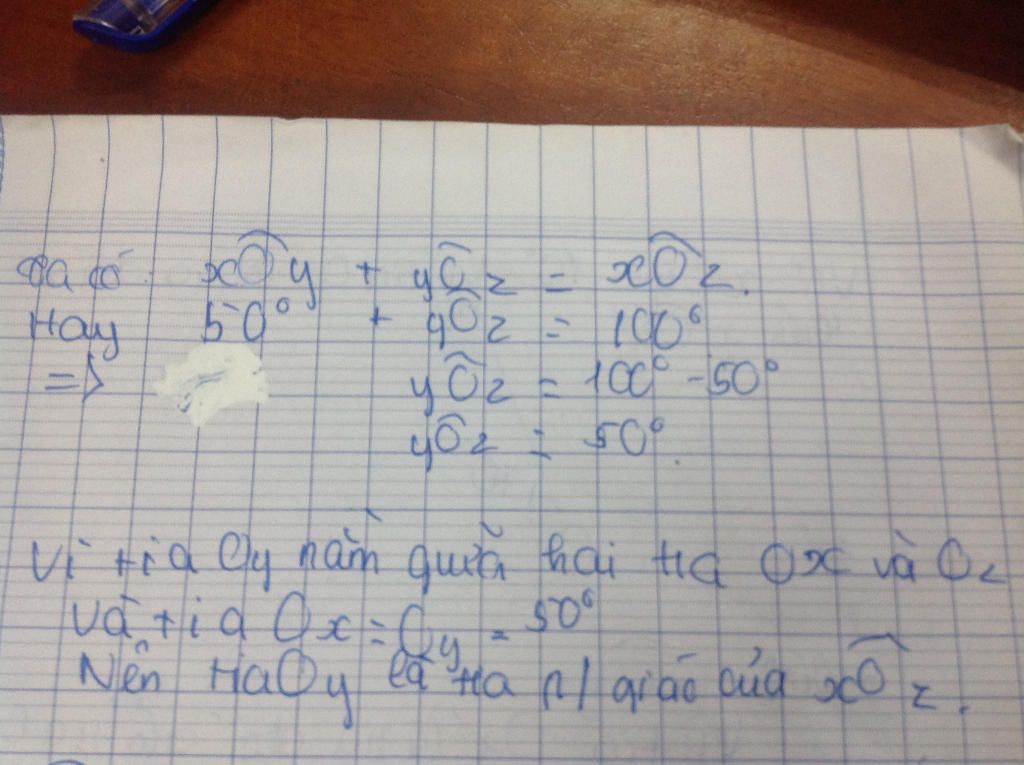 Ta có: xÔy + yÔz = xÔz.
Hay 50° + yÔz = 100°
=> yÔz = 100° - 50°
yÔz = 50°.
Vì tia Oy nằm giữa hai tia Ox và Oz
Và tia Ox = Oy = 50°
Nên tia Oy là tia p/giác của xÔz.